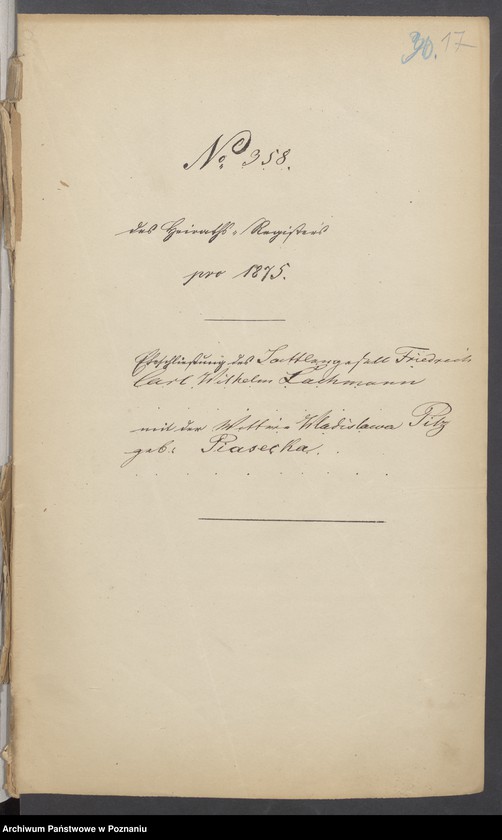 30. 17
No 358.
des Heiraths-Registers
pro 1875.
Eheschließung des Sattlergesell Friedrich
Carl Wilhelm Lachmann
mit der Wittwe Wladislawa Pilz
geb: Piasecka.
Archiwum Państwowe w Poznaniu